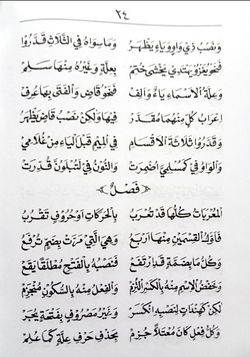 ٢٤
وَنَصْبُ ذِي وَاوٍ وَيَاءٍ يَظْهَرُ وَمَا سِوَاهُ فِي الثَّلَاثِ قَدَّرُوا
فَنَحْوُ يَغْزُو يَهْتَدِي يَخْشَى خُتِمْ بِعِلَّةٍ وَغَيْرُهُ مِنْهَا سَلِمْ
وَعِلَّةُ الْأَسْمَاءِ يَاءٌ وَأَلِفْ فَنَحْوُ قَاضٍ وَالْفَتَى بِهَا عُرِفْ
إِعْرَابُ كُلٍّ مِنْهُمَا مُقَدَّرُ فِيهَا وَلَكِنْ نَصْبُ قَاضٍ يَظْهَرُ
وَقَدَّرُوا ثَلَاثَةَ الْأَقْسَامِ فِي الْمِيمِ قَبْلَ الْيَاءِ مِنْ غُلَامِي
وَالْوَاوُ فِي كَمُسْلِمِيَّ أُضْمِرَتْ وَالنُّونُ فِي لَتُبْلَوُنَّ قُدِّرَتْ
﴿ فَصْلٌ ﴾
الْمُعْرَبَاتُ كُلُّهَا قَدْ تُعْرَبُ بِالْحَرَكَاتِ أَوْ حُرُوفٍ تَقْرُبُ
فَأَوَّلُ الْقِسْمَيْنِ مِنْهَا أَرْبَعُ وَهْيَ الَّتِي مَرَّتْ بِضَمٍّ تُرْفَعُ
وَكُلُّ مَا بِضَمَّةٍ قَدِ ارْتَفَعْ فَنَصْبُهُ بِالْفَتْحِ مُطْلَقًا يَقَعْ
وَخَفْضُ الْاِسْمِ مِنْهُ بِالْكَسْرِ الْتُزِمْ وَالْفِعْلُ مِنْهُ بِالسُّكُونِ مُنْجَزِمْ
لَكِنْ كَهِنْدَاتٍ لِنَصْبِهِ انْكَسَرْ وَغَيْرُ مَصْرُوفٍ بِفَتْحَةٍ يُجَرْ
وَكُلُّ فِعْلٍ كَانَ مُعْتَلًّا جُزِمْ بِحَذْفِ حَرْفِ عِلَّةٍ كَمَا عُلِمْ